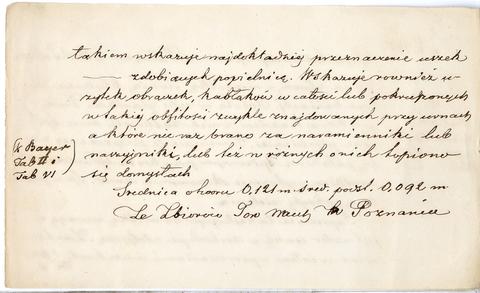 takiem wskazuje najdokładniej przeznaczenie uszek
—— zdobiących popielnicę. Wskazuje również u-
żytek obrączek, kabłąków w całości lub pokręconych
w takiej obfitości zwykle znajdowanych przy urnach
a które nie raz brano za naramienniki lub
naszyjniki, lub też w różnych o nich topiono
się domysłach
Średnica otworu 0,121 m śred. podst. 0,092 m
Ze Zbiorów Tow Poznaniu
Bayer
Tab II i
Tab VI